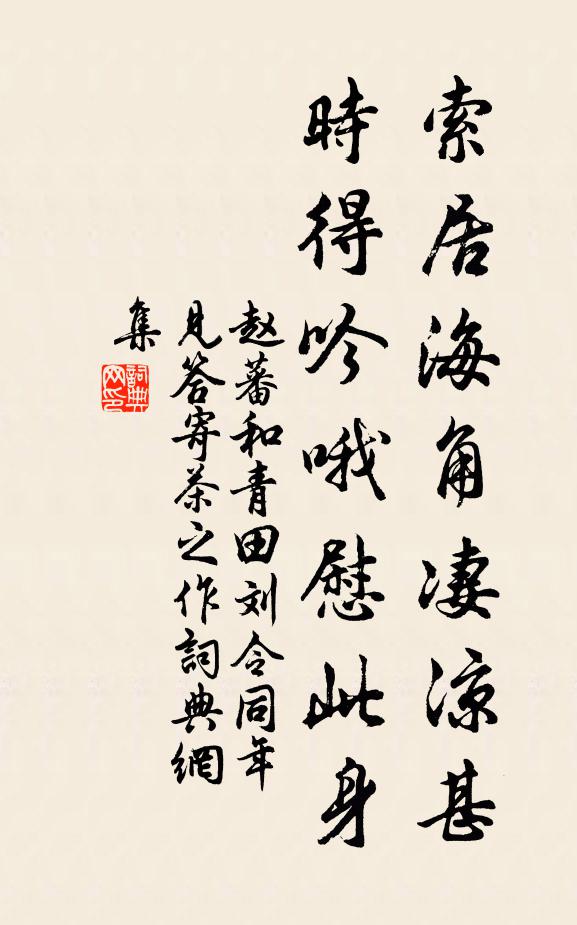 索居海角凄凉甚
時得吟哦慰此身
赵蕃和青田刘令同年
見答寄茶之作詞典網
集
詞典
网印